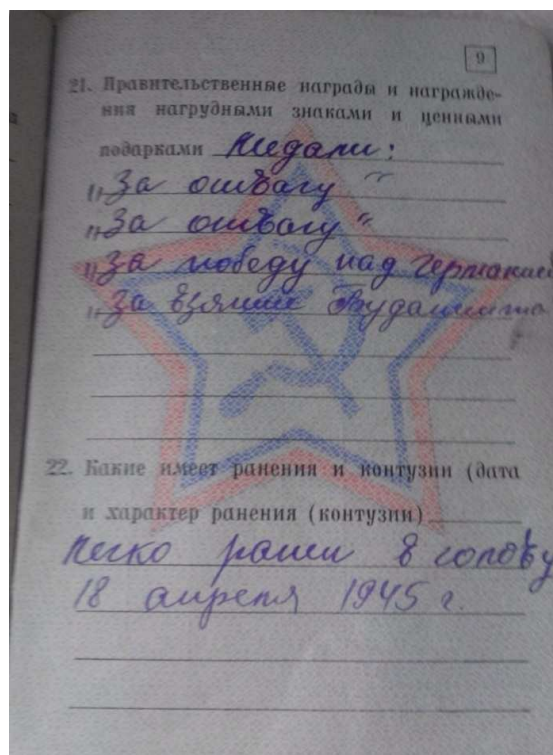 9
21. Правительственные награды и награжде-
ния нагрудными знаками и ценными
подарками Медали:
1) „За отвагу“
1) „За отвагу“
1) „За победу над Германией
1) „За взятие Будапешта
22. Какие имеет ранения и контузии (дата
и характер ранения (контузии)
Легко ранен в голову
18 апреля 1945 г.